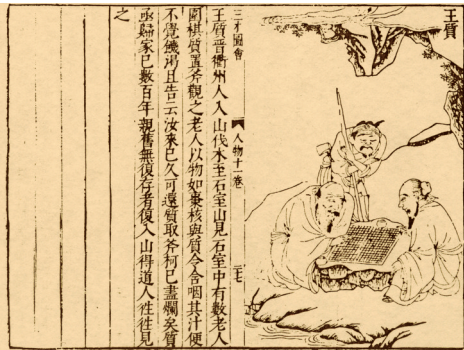 王質
三才圖會 人物十一卷 二七
王質晉衢州人入山伐木至石室山見石室中有數老人
圍棋質置斧觀之老人以物如棗核與質令含咽其汁便
不覺饑渴且告云汝來已久可還質取斧柯已盡爛矣質
亟歸家已數百年親舊無復存者復入山得道人徃徃見
之